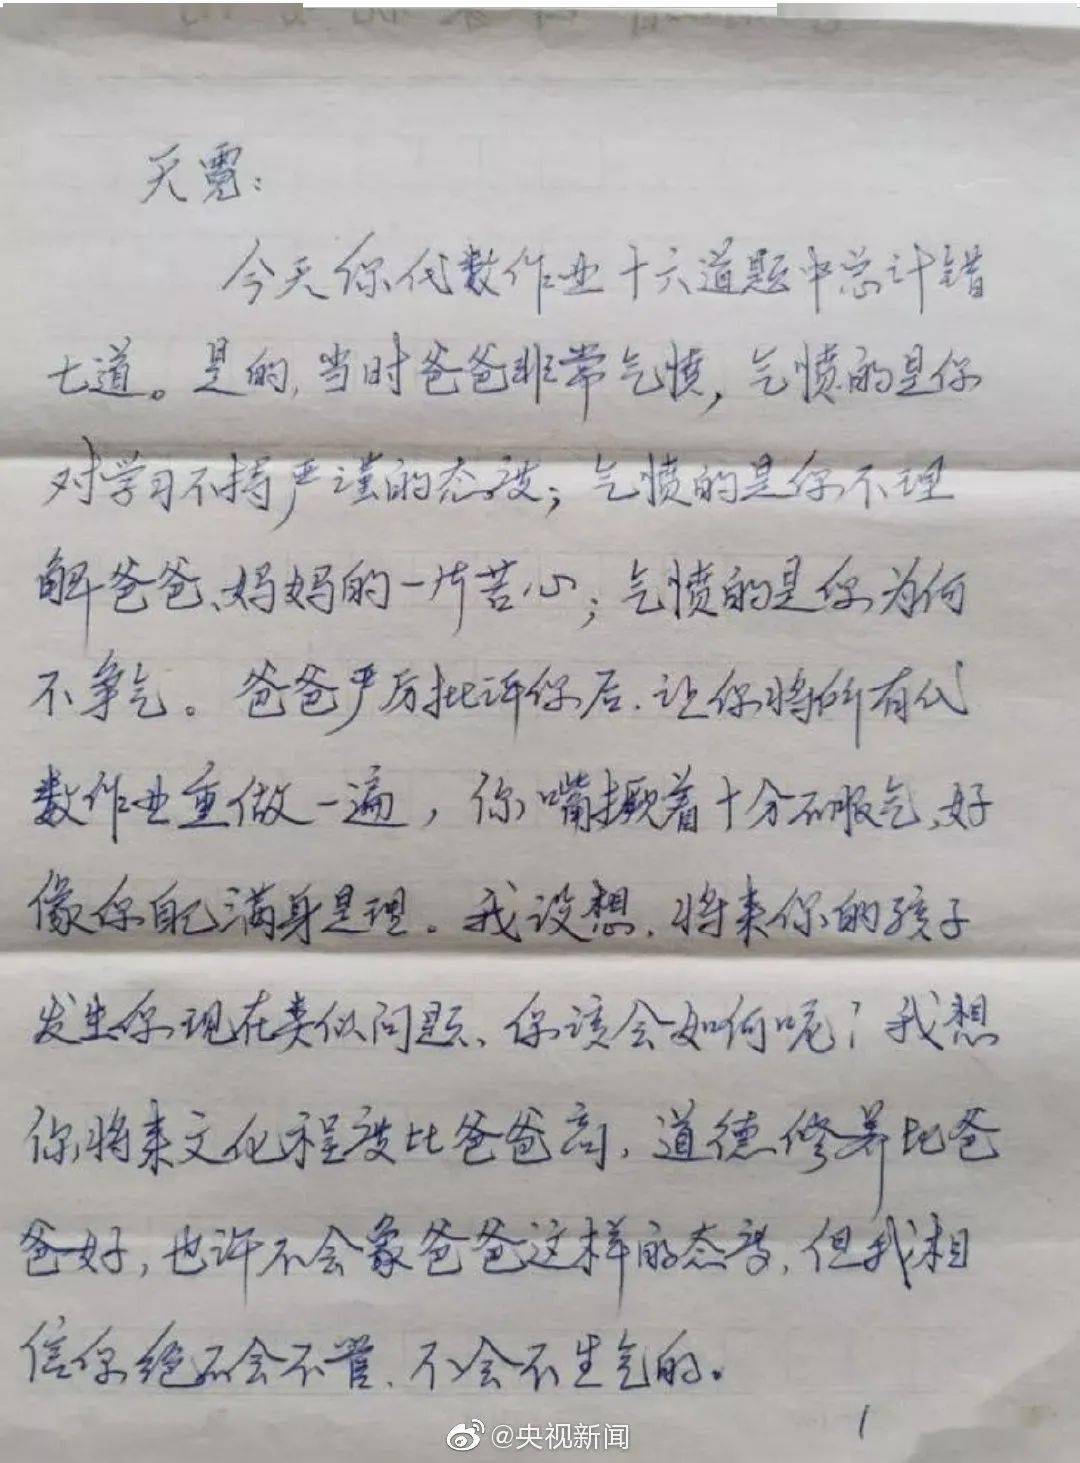 天霓:
今天你代数作业十六道题中总计错
七道。是的,当时爸爸非常气愤,气愤的是你
对学习不持严谨的态度;气愤的是你不理
解爸爸、妈妈的一片苦心;气愤的是你为何
不争气。爸爸严厉批评你后,让你将所有代
数作业重做一遍,你嘴撅着十分不服气,好
像你自己满身是理。我设想,将来你的孩子
发生你现在类似问题,你该会如何呢?我想
你将来文化程度比爸爸高,道德修养比爸
爸好,也许不会象爸爸这样的态度,但我相
信你绝不会不管,不会不生气的。
1
@央视新闻